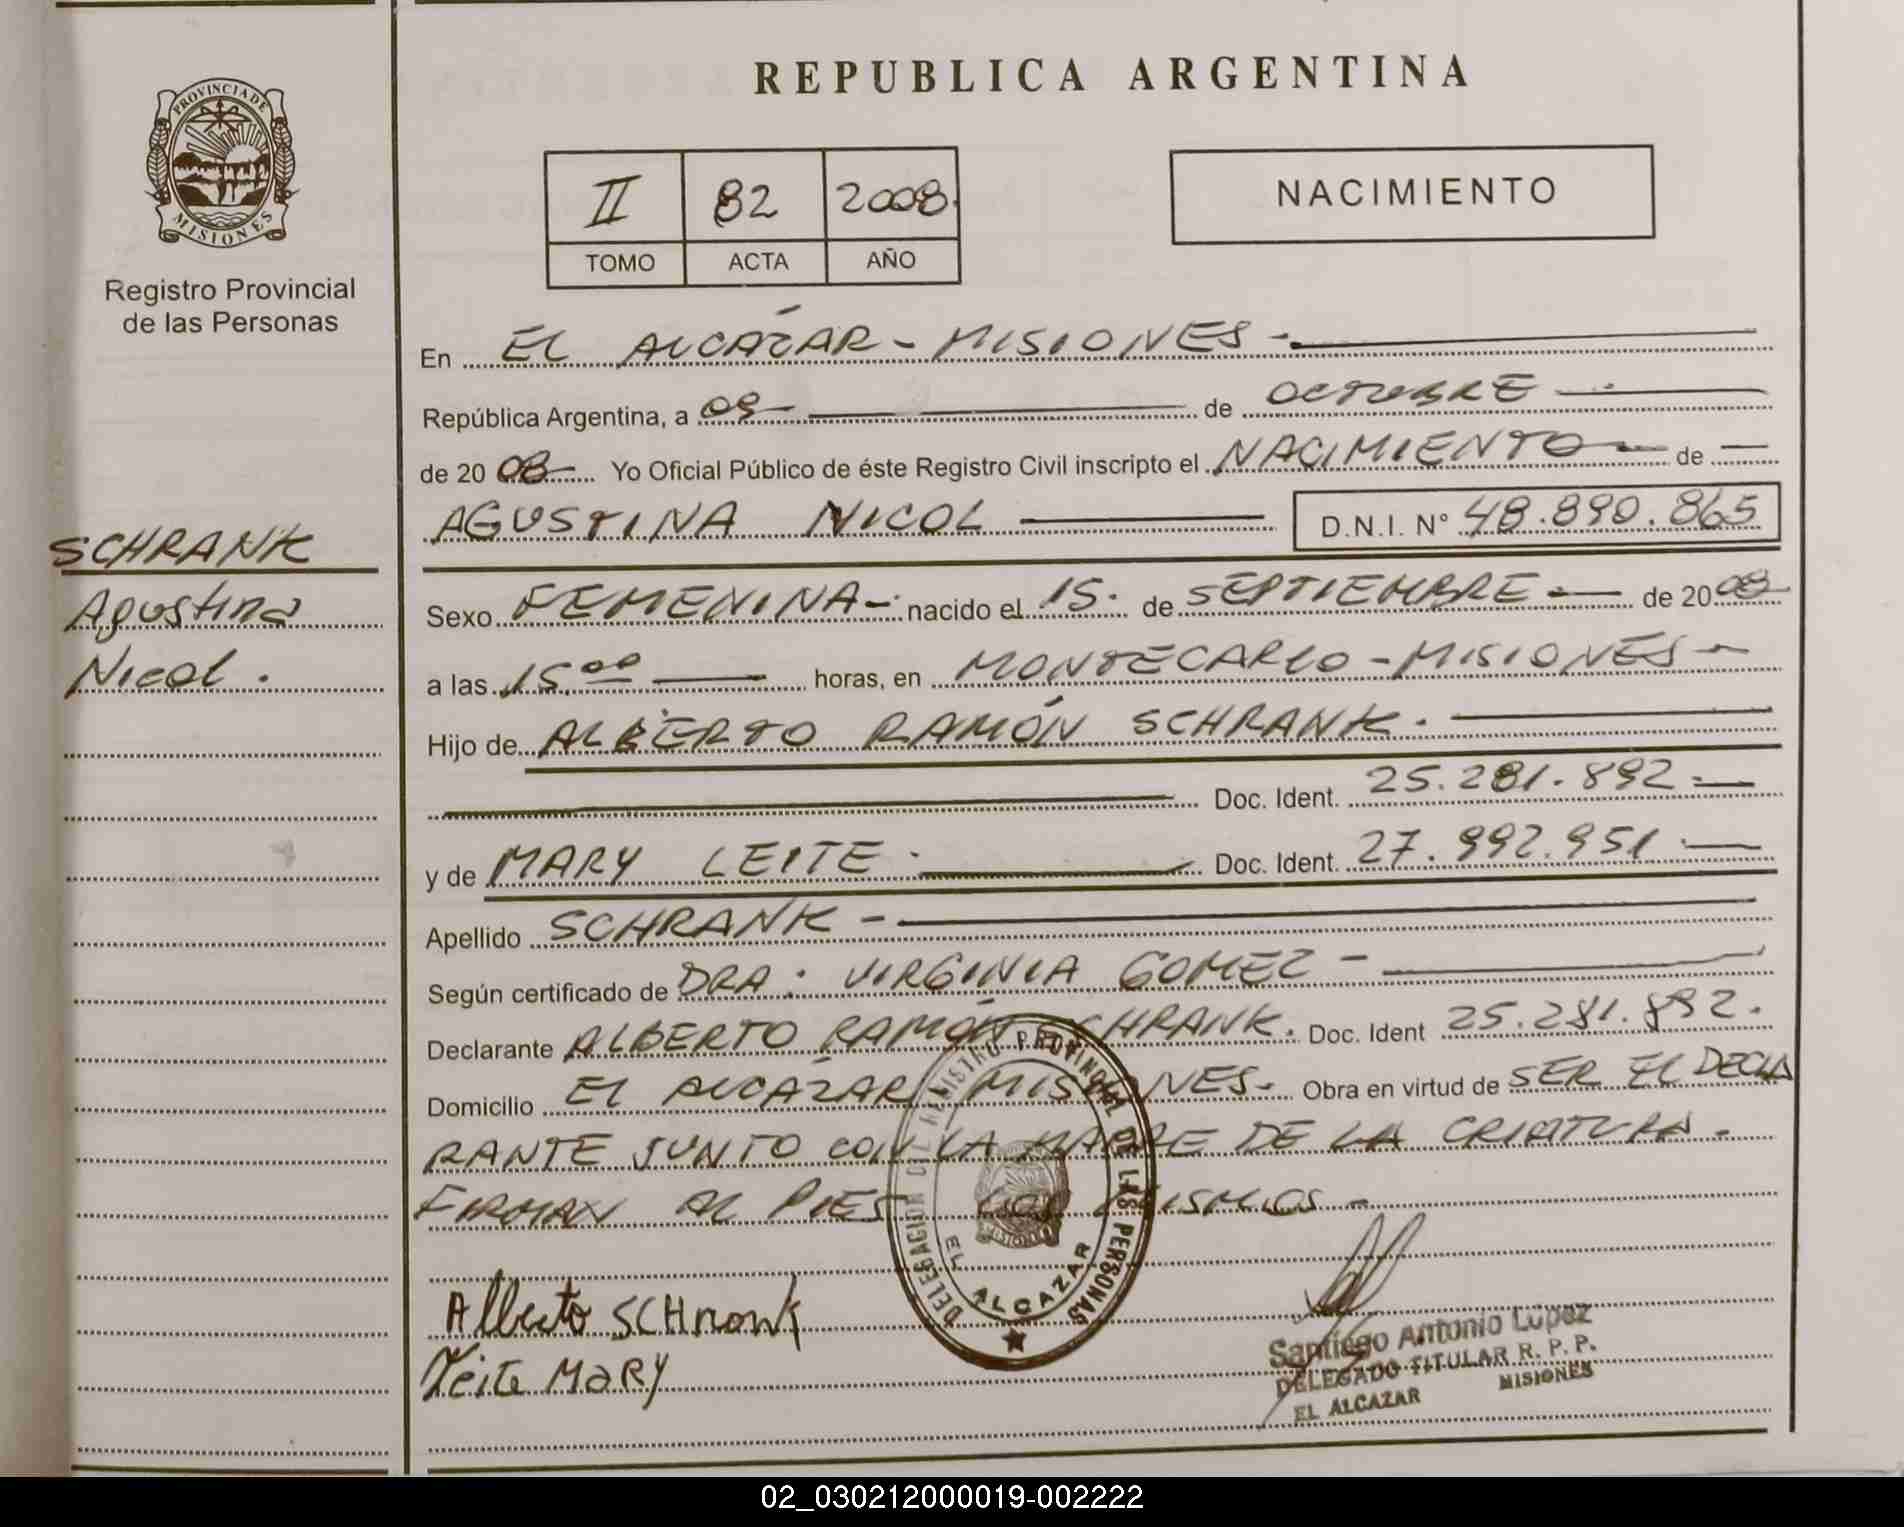 REPUBLICA ARGENTINA
PROVINCIA DE
MISIONES
Registro Provincial
de las Personas
II 82 2008.
TOMO ACTA AÑO
NACIMIENTO
En EL ALCÁZAR - MISIONES -
República Argentina, a 09 de OCTUBRE
de 20 08 Yo Oficial Público de éste Registro Civil inscripto el NACIMIENTO de
AGUSTINA NICOL D.N.I. N° 48.890.865
SCHRANK
Agustina
Nicol.
Sexo FEMENINA - nacido el 15. de SEPTIEMBRE de 2008
a las 15.00 horas, en MONTECARLO - MISIONES -
Hijo de ALBERTO RAMÓN SCHRANK.
Doc. Ident. 25.281.892
y de MARY LEITE. Doc. Ident. 27.992.951
Apellido SCHRANK -
Según certificado de DRA: VIRGINIA GOMEZ -
Declarante ALBERTO RAMÓN SCHRANK. Doc. Ident 25.281.892.
Domicilio EL ALCÁZAR MISIONES. Obra en virtud de SER EL DECLA
RANTE JUNTO CON LA MADRE DE LA CRIATURA.
FIRMAN AL PIES LOS MISMOS -
DELEGACION DEL REGISTRO PROVINCIAL DE LAS PERSONAS
EL ALCAZAR
MISIONES
Alberto SCHrank
Leite MARY
Santiago Antonio López
DELEGADO TITULAR R. P. P.
EL ALCAZAR MISIONES
02_030212000019-002222